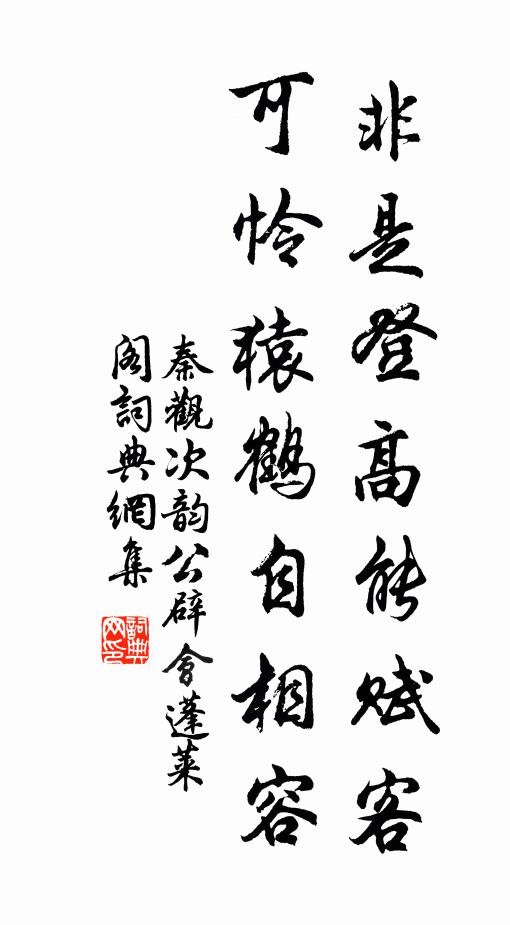 非是登高能賦客
可憐猿鶴自相容
秦觀次韵公辟會蓬萊
閣詞典網集
詞典网印